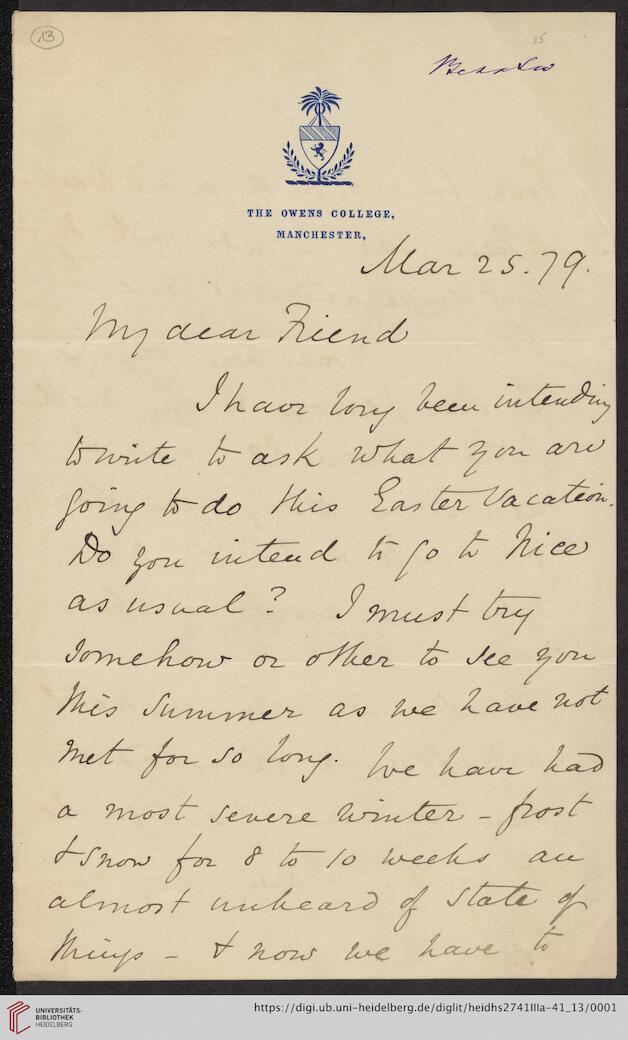 13
25
THE OWENS COLLEGE,
MANCHESTER,
Mar 25. 79.
My dear Friend
I have long been intending
to write to ask what you are
going to do this Easter Vacation.
Do you intend to go to Nice
as usual? I must try
somehow or other to see you
this summer as we have not
met for so long. We have had
a most severe winter – frost
& snow for 8 to 10 weeks an
almost unheard of state of
things – & now we have to
UNIVERSITÄTS-
BIBLIOTHEK
HEIDELBERG
https://digi.ub.uni-heidelberg.de/diglit/heidhs2741IIIa-41_13/0001